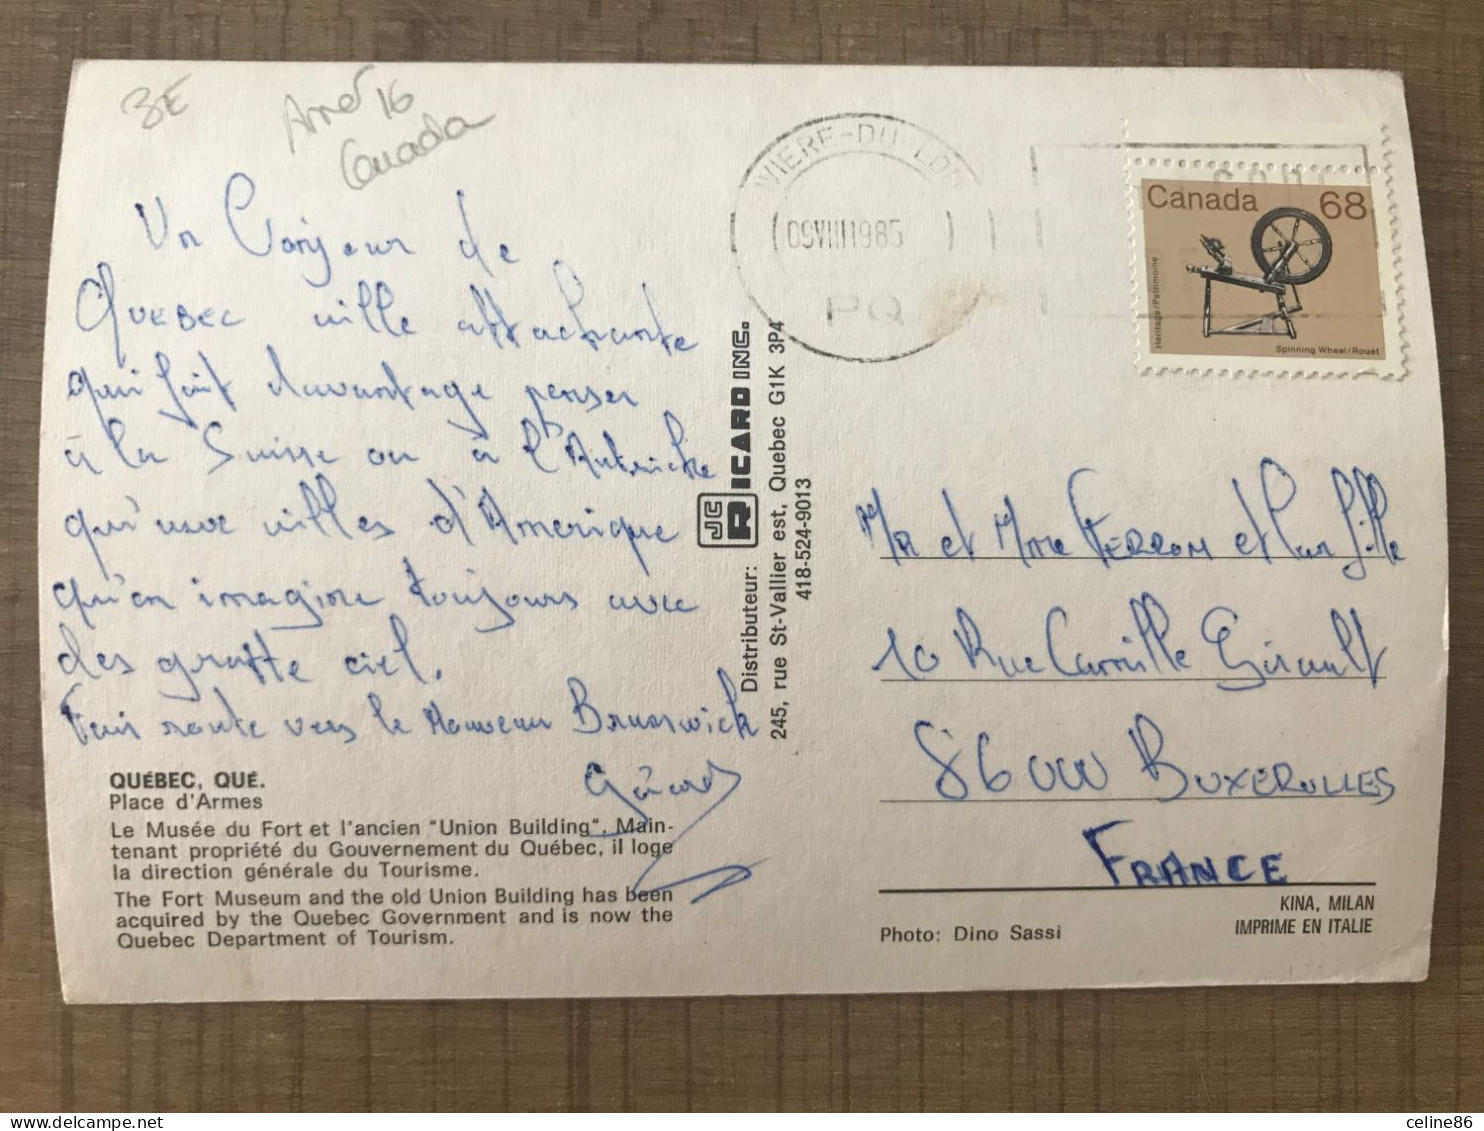 3E
16
Canada
Un Bonjour de
QUEBEC ville attachante
qui fait davantage penser
à la Suisse ou à l'Autriche
qu'aux villes d'Amérique
qu'on imagine toujours avec
des gratte ciel.
Fais route vers le Nouveau Brunswick
Gérard
QUÉBEC, QUÉ.
Place d'Armes
Le Musée du Fort et l'ancien "Union Building". Main-
tenant propriété du Gouvernement du Québec, il loge
la direction générale du Tourisme.
The Fort Museum and the old Union Building has been
acquired by the Quebec Government and is now the
Quebec Department of Tourism.
Distributeur: JC R RICARD INC.
245, rue St-Vallier est, Quebec G1K 3P4
418-524-9013
VIERE-DU-LOU
09 VIII 1985
PQ
Canada 68
Heritage/Patrimoine
Spinning Wheel/Rouet
Mr et Mme FERRON et leur fille
10 Rue Camille Girault
86000 BUXEROLLES
FRANCE
KINA, MILAN
IMPRIME EN ITALIE
Photo: Dino Sassi
celine86